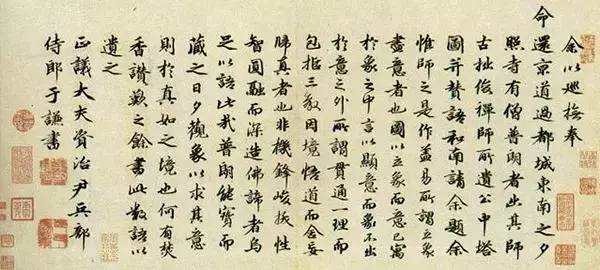 余以巡撫奉
命還京道過都城東南之夕
照寺有僧普朗者出其師
古拙俊禪師所遺公中塔
圖并賛語和南請余題余
惟師之是作蓋易所謂立象
盡意者也圖以立象而意已寓
於象之中言以顯意而象不出
於意之外所謂貫通一理而
包括三教因境悟道而舍妄
歸真者也非機鋒峻拔性
智圓融而深造佛諦者烏
足以語此哉普朗能寶而
藏之日夕觀象以求其意
則於真如之境也何有焚
香讚歎之餘書此數語以
遺之
正議大夫資治尹兵部
侍郎于謙書